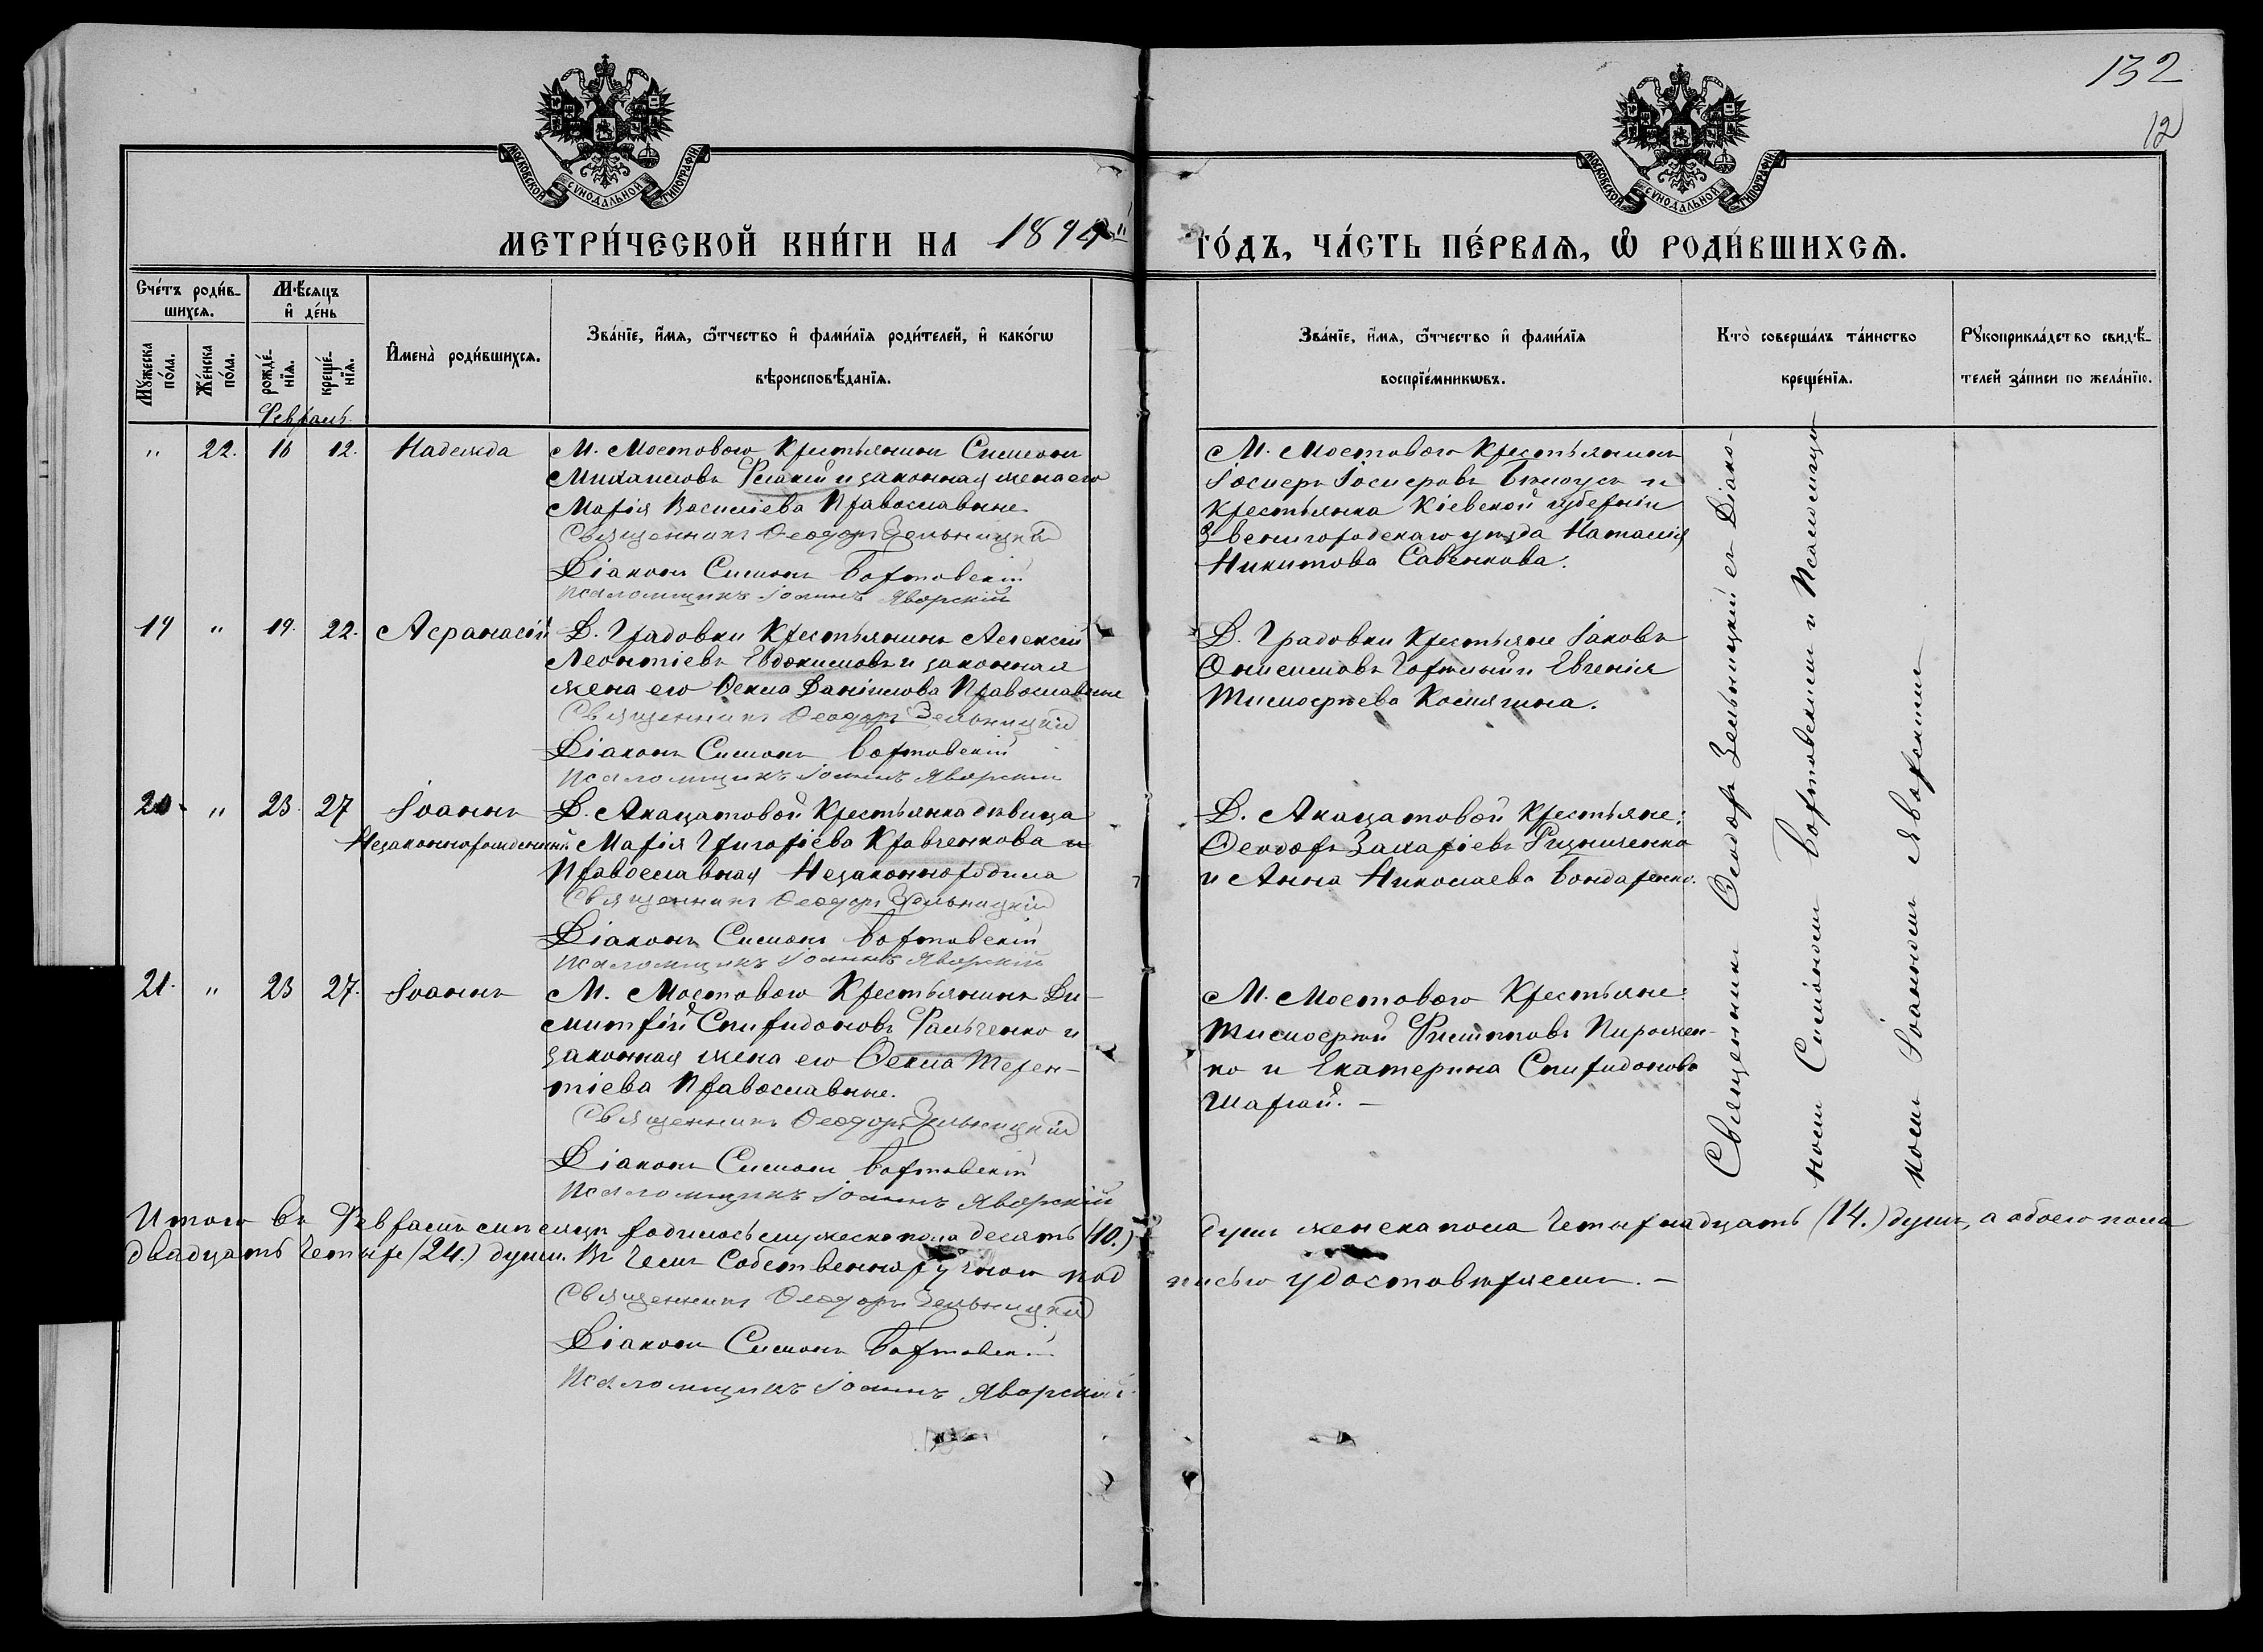 132
12
МОСКОВСКОЙ СУНОДАЛЬНОЙ ТИПОГРАФІИ
МОСКОВСКОЙ СУНОДАЛЬНОЙ ТИПОГРАФІИ
МЕТРИ́ЧЕСКОЙ КНИ́ГИ НА 1894 ГО́ДЪ, ЧА́СТЬ ПЕ́РВАѦ, Ѡ РОДИ́ВШИХСѦ.
Сче́тъ роди́в-
шихсѧ.
Мѣ́сѧцъ
и҆ де́нь
Мꙋ́жеска по́ла.
Же́нска по́ла.
рожде́-
нїѧ.
креще́-
нїѧ.
И҆мена̀ роди́вшихсѧ.
Зва́нїе, и҆́мѧ, ѻ҆́тчество и҆ фами́лїѧ роди́телей, и҆ како́гѡ
вѣроисповѣ́данїѧ.
Зва́нїе, и҆́мѧ, ѻ҆́тчество и҆ фами́лїѧ
воспрїе́мникѡвъ.
Кто̀ соверша́лъ та́инство
креще́нїѧ.
Рꙋкоприкла́дство свидѣ́-
телей за́писи по жела́нїю.
Февраль.
" 22. 16 12. Надежда
М. Мостового Крестьянинъ Симеонъ
Михаиловъ и законная жена его
Марія Василіева Православные.
Священникъ Ѳеодоръ Зельницкій
Діаконъ Симонъ Бортовскій
Псаломщикъ Іоаннъ Яворскій
М. Мостового Крестьянинъ
Іосифъ Іосифовъ Бѣлоусъ и
Крестьянка Кіевской губерніи
Звенигородскаго уѣзда Наталія
Никитова Савенкова.
19 " 19. 22. Афанасій
Д. Градовки Крестьянинъ Алексій
Леонтіевъ Евдокимовъ и законная
жена его Ѳекла Даніилова Православные
Священникъ Ѳеодоръ Зельницкій
Діаконъ Симонъ Бортовскій
Псаломщикъ Іоаннъ Яворскій
Д. Градовки Крестьяне Іаковъ
Онисимовъ и Евгенія
Тимофѣева
20. " 23. 27 Іоаннъ
Незаконнорожденный
Д. Акацатовой Крестьянка дѣвица
Марія Григоріева Кравченкова и
Православная Незаконно родила
Священникъ Ѳеодоръ Зельницкій
Діаконъ Симонъ Бортовскій
Псаломщикъ Іоаннъ Яворскій
Д. Акацатовой Крестьяне:
Ѳеодоръ Захаріевъ Ризниченко
и Анна Николаева Бондаренко.
21. " 23 27. Іоаннъ
М. Мостового Крестьянинъ Ди-
митрій Спиридоновъ Фальченко и
законная жена его Ѳекла Терен-
тіева Православные.
Священникъ Ѳеодоръ Зельницкій
Діаконъ Симонъ Бортовскій
Псаломщикъ Іоаннъ Яворскій
М. Мостового Крестьяне:
Тимофей Филипповъ Пирожен-
ко и Екатерина Спиридонова
Шарай. —
Священникъ Ѳеодоръ Зельницкій съ Діако-
номъ Симономъ Бортовскимъ и Псаломщи-
комъ Іоанномъ Яворскимъ
Итого въ Февралѣ мѣсяцѣ родилось мужеска пола десять (10.) душъ женска пола четырнадцать (14.) душъ, а обоего пола
двадцать четыре (24.) души. Въ чемъ собственноручною под писью удостовѣряемъ. —
Священникъ Ѳеодоръ Зельницкій
Діаконъ Симонъ Бортовскій
Псаломщикъ Іоаннъ Яворскій